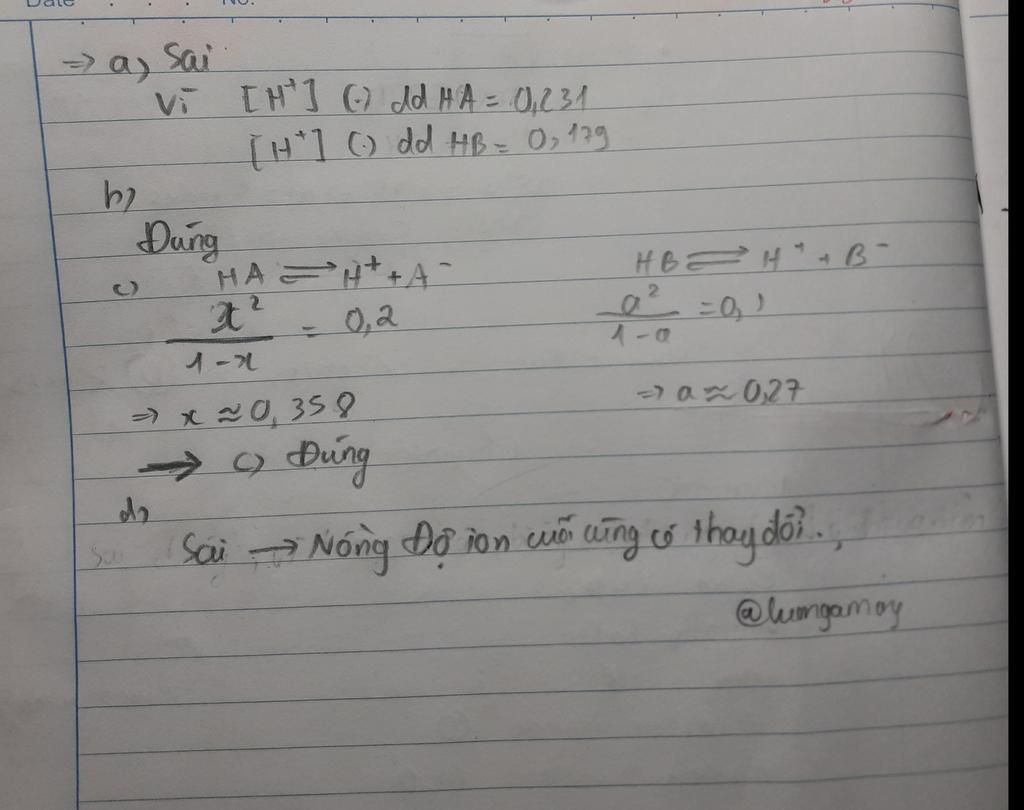 Date No.
⇒ a) Sai
Vì [H⁺] (.) dd HA = 0,231
[H⁺] (.) dd HB = 0,179
b)
Đúng
c) HA ⇌ H⁺ + A⁻ HB ⇌ H⁺ + B⁻
x²/(1-x) = 0,2 a²/(1-a) = 0,1
⇒ x ≈ 0,358 ⇒ a ≈ 0,27
→ c) Đúng
d)
Sai → Nồng Độ ion cuối cùng có thay đổi.,
@lumgamoy